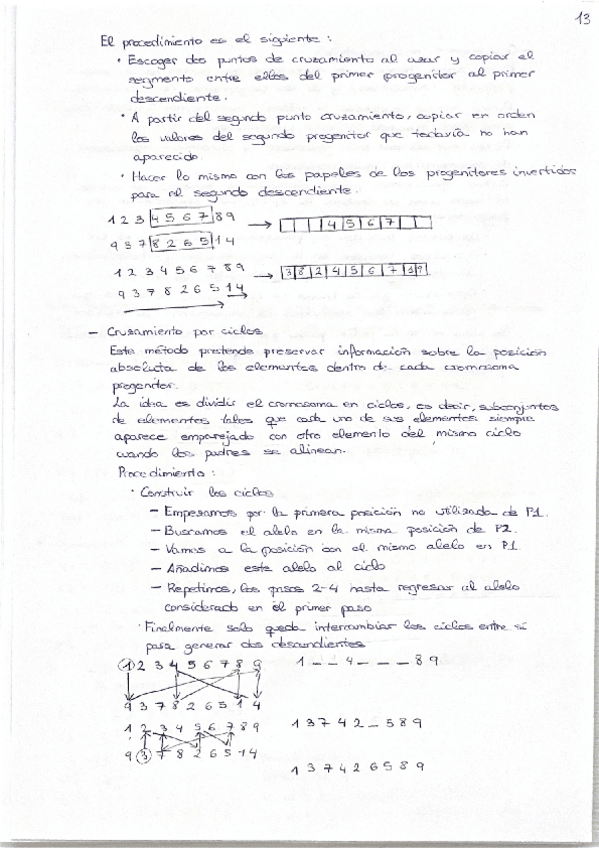 13
El procedimiento es el siguiente:
· Escoger dos puntos de cruzamiento al azar y copiar el
segmento entre ellos del primer progenitor al primer
descendiente.
· A partir del segundo punto cruzamiento, copiar en orden
los valores del segundo progenitor que todavía no han
aparecido.
· Hacer lo mismo con los papeles de los progenitores invertidos
para el segundo descendiente.
1 2 3 4 5 6 7 8 9 → 4 5 6 7
9 3 7 8 2 6 5 1 4
1 2 3 4 5 6 7 8 9 → 3 8 2 4 5 6 7 1 9
9 3 7 8 2 6 5 1 4
- Cruzamiento por ciclos
Este método pretende preservar información sobre la posición
absoluta de los elementos dentro de cada cromosoma
progenitor.
La idea es dividir el cromosoma en ciclos, es decir, subconjuntos
de elementos tales que cada uno de sus elementos siempre
aparece emparejado con otro elemento del mismo ciclo
cuando los padres se alinean.
Procedimiento:
· Construir los ciclos
- Empezamos por la primera posición no utilizada de P1.
- Buscamos el alelo en la misma posición de P2.
- Vamos a la posición con el mismo alelo en P1
- Añadimos este alelo al ciclo
- Repetimos, los pasos 2-4 hasta regresar al alelo
considerado en el primer paso
· Finalmente solo queda intercambiar los ciclos entre sí
para generar dos descendientes
1 2 3 4 5 6 7 8 9 1 _ _ 4 _ _ _ 8 9
9 3 7 8 2 6 5 1 4
1 2 3 4 5 6 7 8 9 1 3 7 4 2 _ 5 8 9
9 3 7 8 2 6 5 1 4
1 3 7 4 2 6 5 8 9